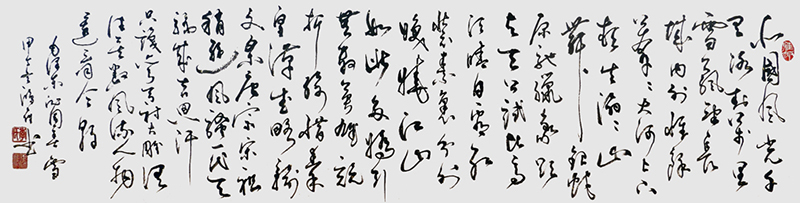 北國風光千
里冰封萬里
雪飄望長
城內外惟餘
莽莽大河上下
頓失滔滔山
舞銀蛇
原馳蠟象欲
與天公試比高
須晴日看紅
裝素裹分外
妖嬈江山
如此多嬌引
無數英雄競
折腰惜秦
皇漢武略輸
文采唐宗宋祖
稍遜風騷一代天
驕成吉思汗
只識彎弓射大雕俱
往矣數風流人物
還看今朝
毛澤東沁園春雪